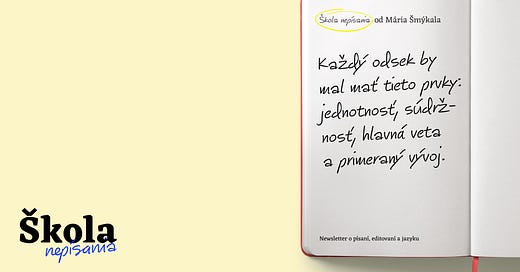 Škola nepísania od Mária Šmýkala
Každý odsek by
mal mať tieto prvky:
jednotnosť, súdrž-
nosť, hlavná veta
a primeraný vývoj.
Newsletter o písaní, editovaní a jazyku
Škola
nepísania